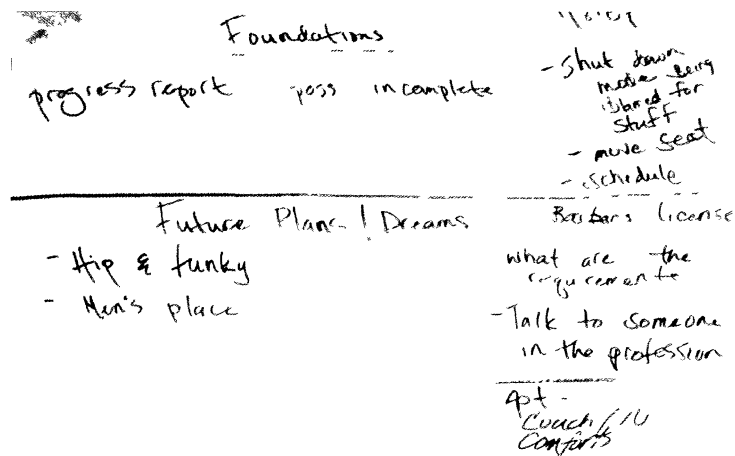 Foundations
progress report poss incomplete
- Shut down
mode being
blamed for
stuff
- move seat
- schedule
Future Plans / Dreams
- Hip & funky
- Men's place
Barbers license
what are the
requirements
- Talk to someone
in the profession
Apt -
Couch